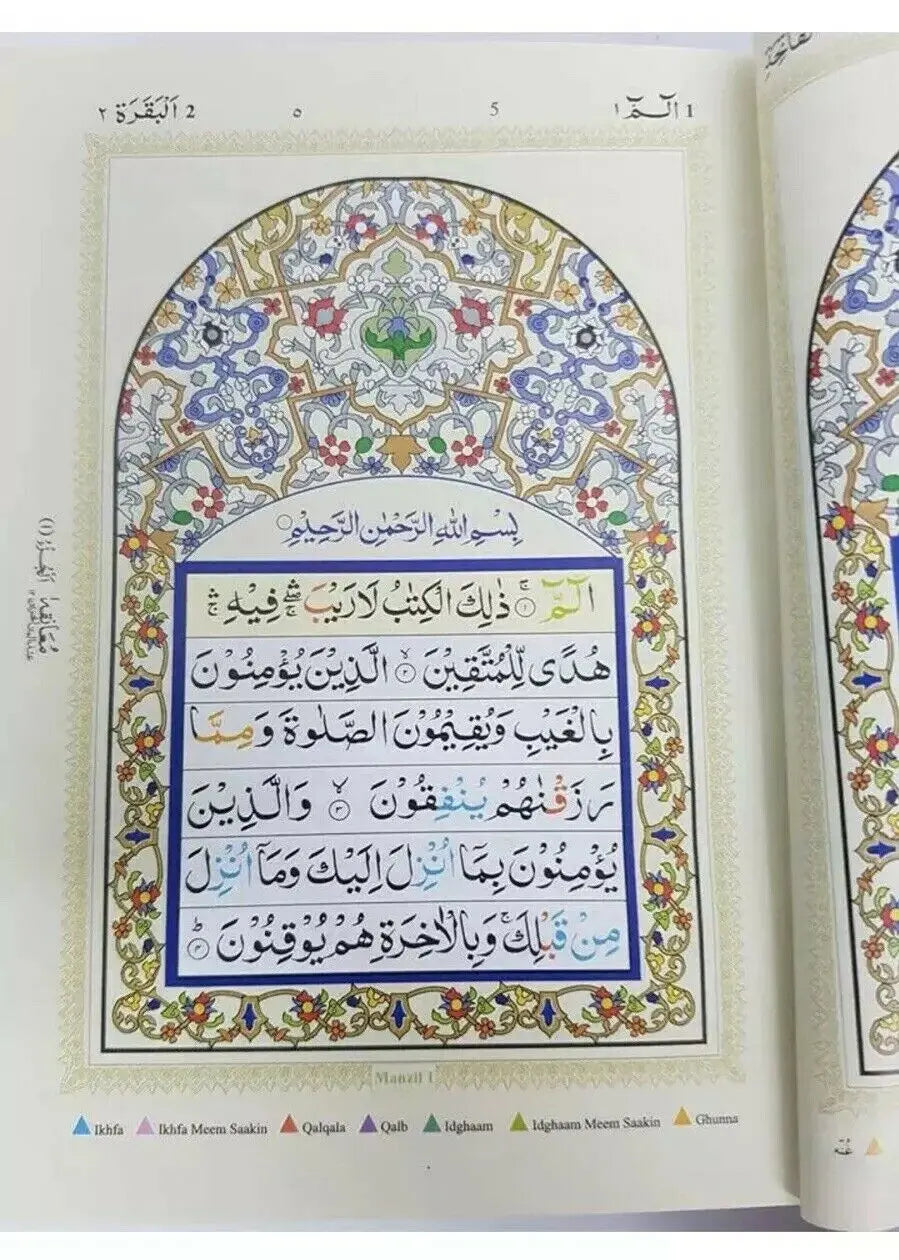 1 الٓمّٓ ١ 5 ٥ 2 اَلْبَقَرَة ٢
بِسْمِ اللهِ الرَّحْمٰنِ الرَّحِيْمِ
الٓمّٓ ۚ‏ ﴿١﴾ ذٰلِكَ الْكِتٰبُ لَا رَيْبَ ۛۖ فِيْهِ ۛ
هُدًى لِّلْمُتَّقِيْنَ ۙ‏ ﴿٢﴾ الَّذِيْنَ يُؤْمِنُوْنَ
بِالْغَيْبِ وَيُقِيْمُوْنَ الصَّلٰوةَ وَمِمَّا
رَزَقْنٰهُمْ يُنْفِقُوْنَ ۙ‏ ﴿٣﴾ وَالَّذِيْنَ
يُؤْمِنُوْنَ بِمَآ اُنْزِلَ اِلَيْكَ وَمَآ اُنْزِلَ
مِنْ قَبْلِكَ ۚ وَبِالْاٰخِرَةِ هُمْ يُوْقِنُوْنَ ؕ‏ ﴿٤﴾
Manzil 1
Ikhfa Ikhfa Meem Saakin Qalqala Qalb Idghaam Idghaam Meem Saakin Ghunna